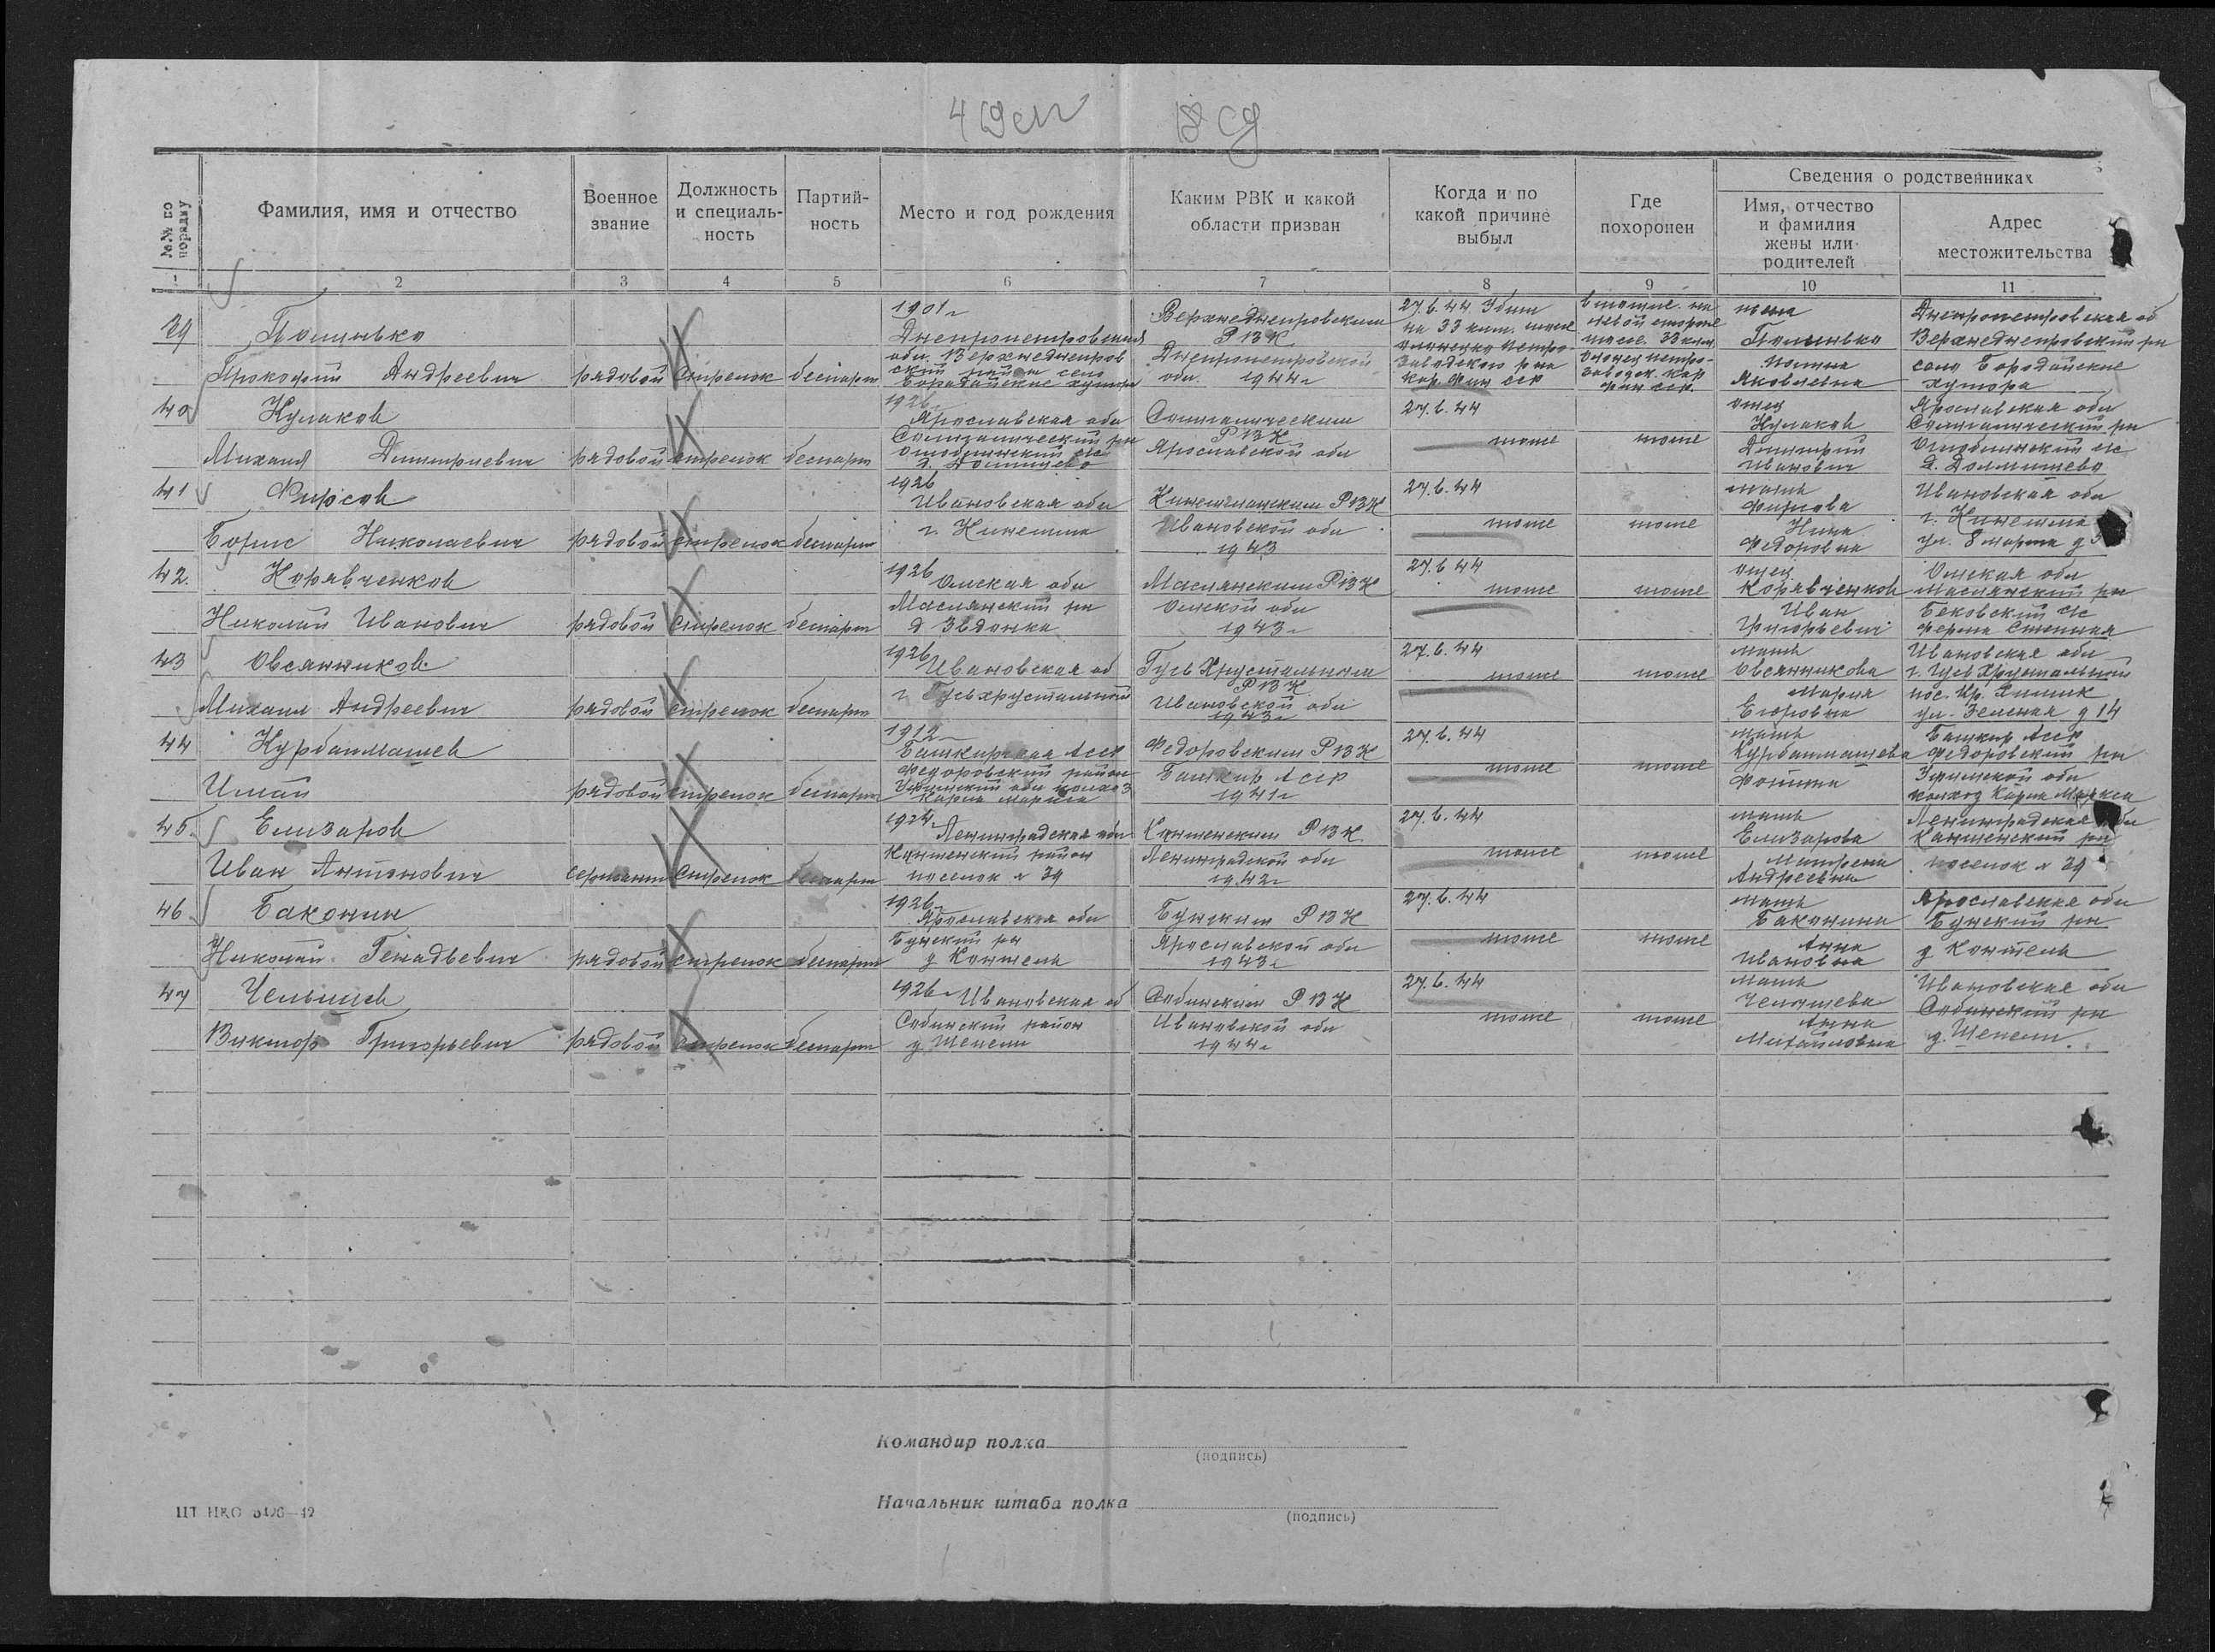 18 сд
№№ по порядку
Фамилия, имя и отчество
Военное звание
Должность и специаль-ность
Партий-ность
Место и год рождения
Каким РВК и какой области призван
Когда и по какой причине выбыл
Где похоронен
Сведения о родственниках
Имя, отчество и фамилия жены или родителей
Адрес местожительства
1 2 3 4 5 6 7 8 9 10 11
39
Прокофий Андреевич рядовой стрелок беспарт
1901г
Днепропетровская обл. Верхнеднепровский район село Бородайские хутора
Верхнеднепровским РВК Днепропетровской обл. 1944г
27.6.44 Убит на 33 клм.
жена
Яковлевна
Днепропетровская об
Верхнеднепровский рн
село Бородайские хутора
40 Кулаков
Михаил Дмитриевич рядовой стрелок беспарт
1926
Ярославская обл
Солигаличский рн
Солигаличским РВК
Ярославской обл
27.6.44
тоже тоже
отец Кулаков Дмитрий Иванович
Ярославская обл
Солигаличский рн
41 Фирсов
Борис Николаевич рядовой стрелок беспарт
1926
Ивановская обл
г. Кинешма
Кинешманским РВК
Ивановской обл
1943
27.6.44
тоже тоже
мать Фирсова Нина Федоровна
Ивановская обл
г. Кинешма
ул. 8 марта д 5
42. Корявченков
Николай Иванович рядовой стрелок беспарт
1926 Омская обл
Маслянский рн
Маслянским РВК
Омской обл
1943г
27.6.44
тоже тоже
отец Корявченков Иван Григорьевич
Омская обл
Маслянский рн
43 Овсянников
Михаил Андреевич рядовой стрелок беспарт
1926 Ивановская об
г. Гусь хрустальный
Гусь Хрустальным РВК
Ивановской обл
1943г
27.6.44
тоже тоже
мать Овсянникова Мария Егоровна
Ивановская обл
г. Гусь Хрустальный
ул. Зеленая д 14
44 Курбанмашев
рядовой стрелок беспарт
1912г
Башкирская Асср
Федоровский район
Уфимский обл колхоз
Карла Маркса
Федоровским РВК
Башкир Асср
1941г
27.6.44
тоже тоже
мать Курбанмашева
Башкир Асср
Федоровский рн
Уфимской обл
колхоз Карла Маркса
45. Елизаров
Иван Антонович сержант стрелок беспарт
1924
Ленинградская обл
район
поселок № 39
РВК
Ленинградской обл
1942г
27.6.44
тоже тоже
мать Елизарова Матрена Андреевна
Ленинградская обл
поселок № 39
46 Баконин
Николай Генадьевич рядовой стрелок беспарт
1926
Ярославская обл
Буйский рн
Буйским РВК
Ярославской обл
1943г
27.6.44
тоже тоже
мать Баконина Анна Ивановна
Ярославская обл
Буйский рн
47 Челышев
Виктор Григорьевич рядовой стрелок беспарт
1926 Ивановская об
Собинский район
д Шепели
Собинским РВК
Ивановской обл
1944г
27.6.44
тоже тоже
мать Челышева Анна Михайловна
Ивановская обл
Собинский рн
д. Шепели
Командир полка
(подпись)
Начальник штаба полка
(подпись)